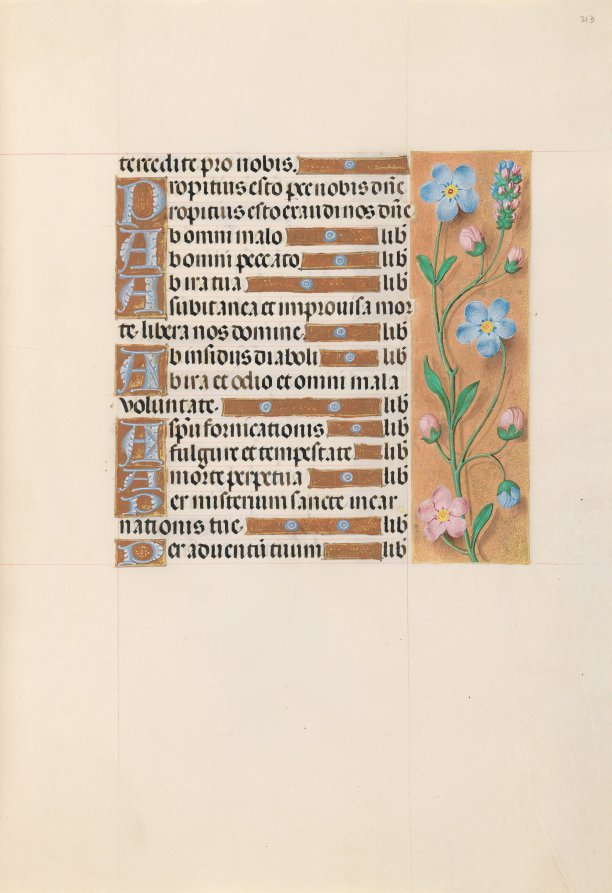 213
tercedite pro nobis.
Propitius esto prce nobis dñe
Propitius esto eraudi nos dñe
A b omni malo lib
A b omni peccato lib
A b ira tua lib
A subitanea et improuisa mor
te. libera nos domine. lib
A b insidiis diaboli lib
A b ira et odio et omni mala
voluntate. lib
A spũ fornicationis lib
A fulgure et tempestate lib
A morte perpetua lib
Per misterium sancte incar
nationis tue. lib
Per aduentũ tuum lib